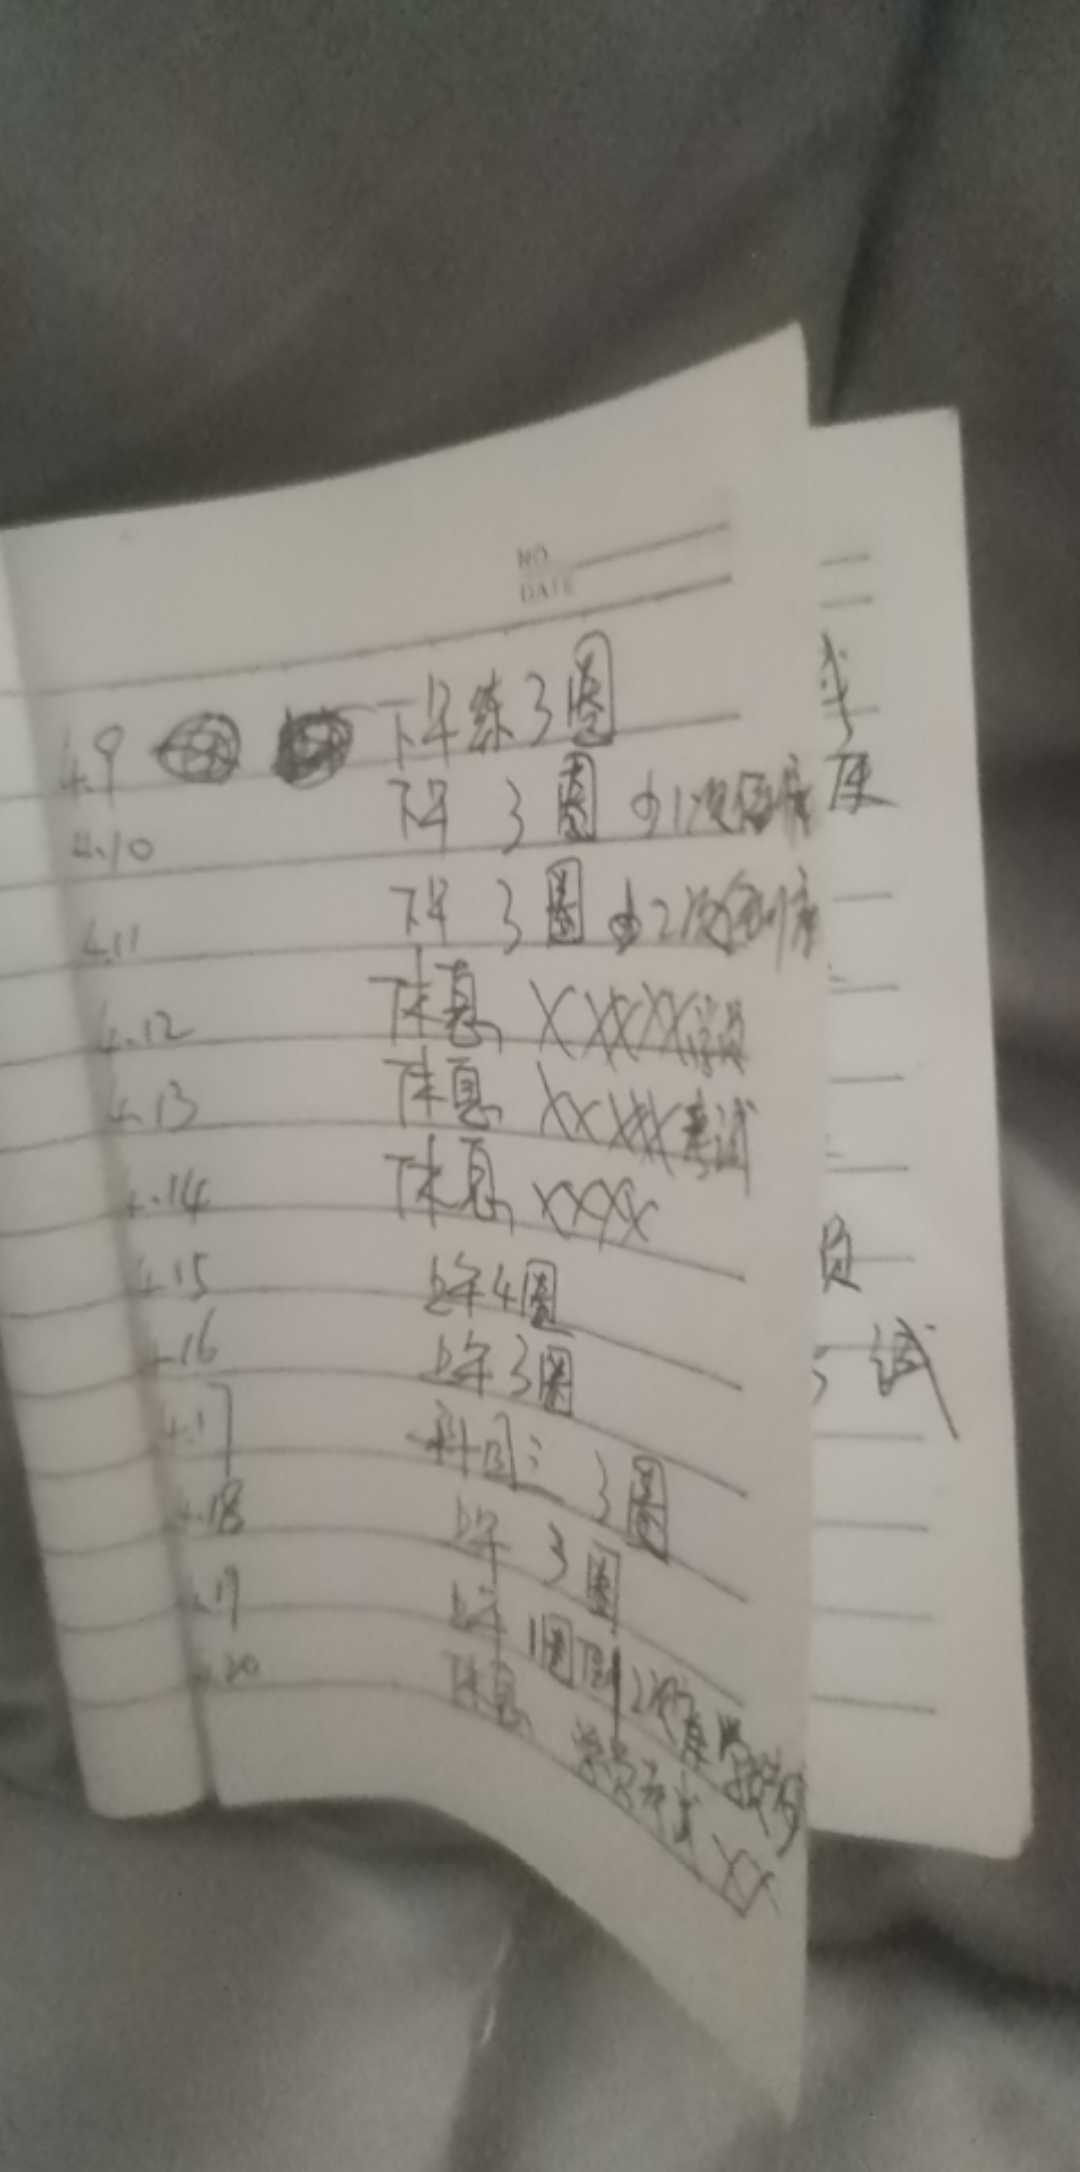 NO.
DATE
4.9 下午练3圈
4.10 下午 3圈 1次倒库
4.11 下午 3圈 2次倒库
4.12 休息 XXXXX学员
4.13 休息 XXXXX考试
4.14 休息 XXXX
4.15 上午4圈
4.16 上午3圈
4.17 科目三 3圈
4.18 上午 3圈
4.19 上午 1圈 2次
4.20 休息 学员考试 XX
库
员
试